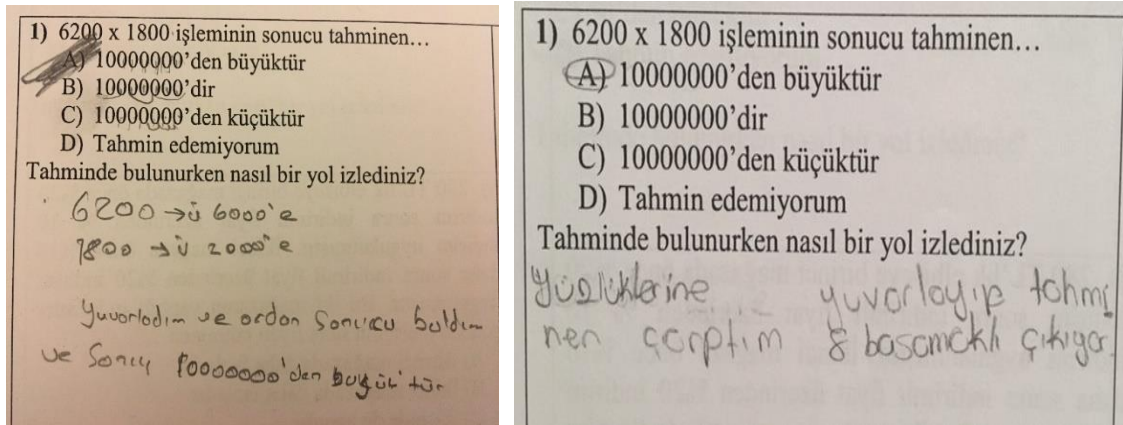 1) 6200 x 1800 işleminin sonucu tahminen…
A) 10000000’den büyüktür
B) 10000000’dir
C) 10000000’den küçüktür
D) Tahmin edemiyorum
Tahminde bulunurken nasıl bir yol izlediniz?
6200 → ü 6000'e
1800 → ü 2000'e
Yuvorlodım ve ordan Sonucu buldım
ve Sonuç 10000000'den büyük'tür
1) 6200 x 1800 işleminin sonucu tahminen…
A) 10000000’den büyüktür
B) 10000000’dir
C) 10000000’den küçüktür
D) Tahmin edemiyorum
Tahminde bulunurken nasıl bir yol izlediniz?
Yüzlüklerine yuvarlayıp tahmi
nen çarptım 8 basamaklı çıkıyor.